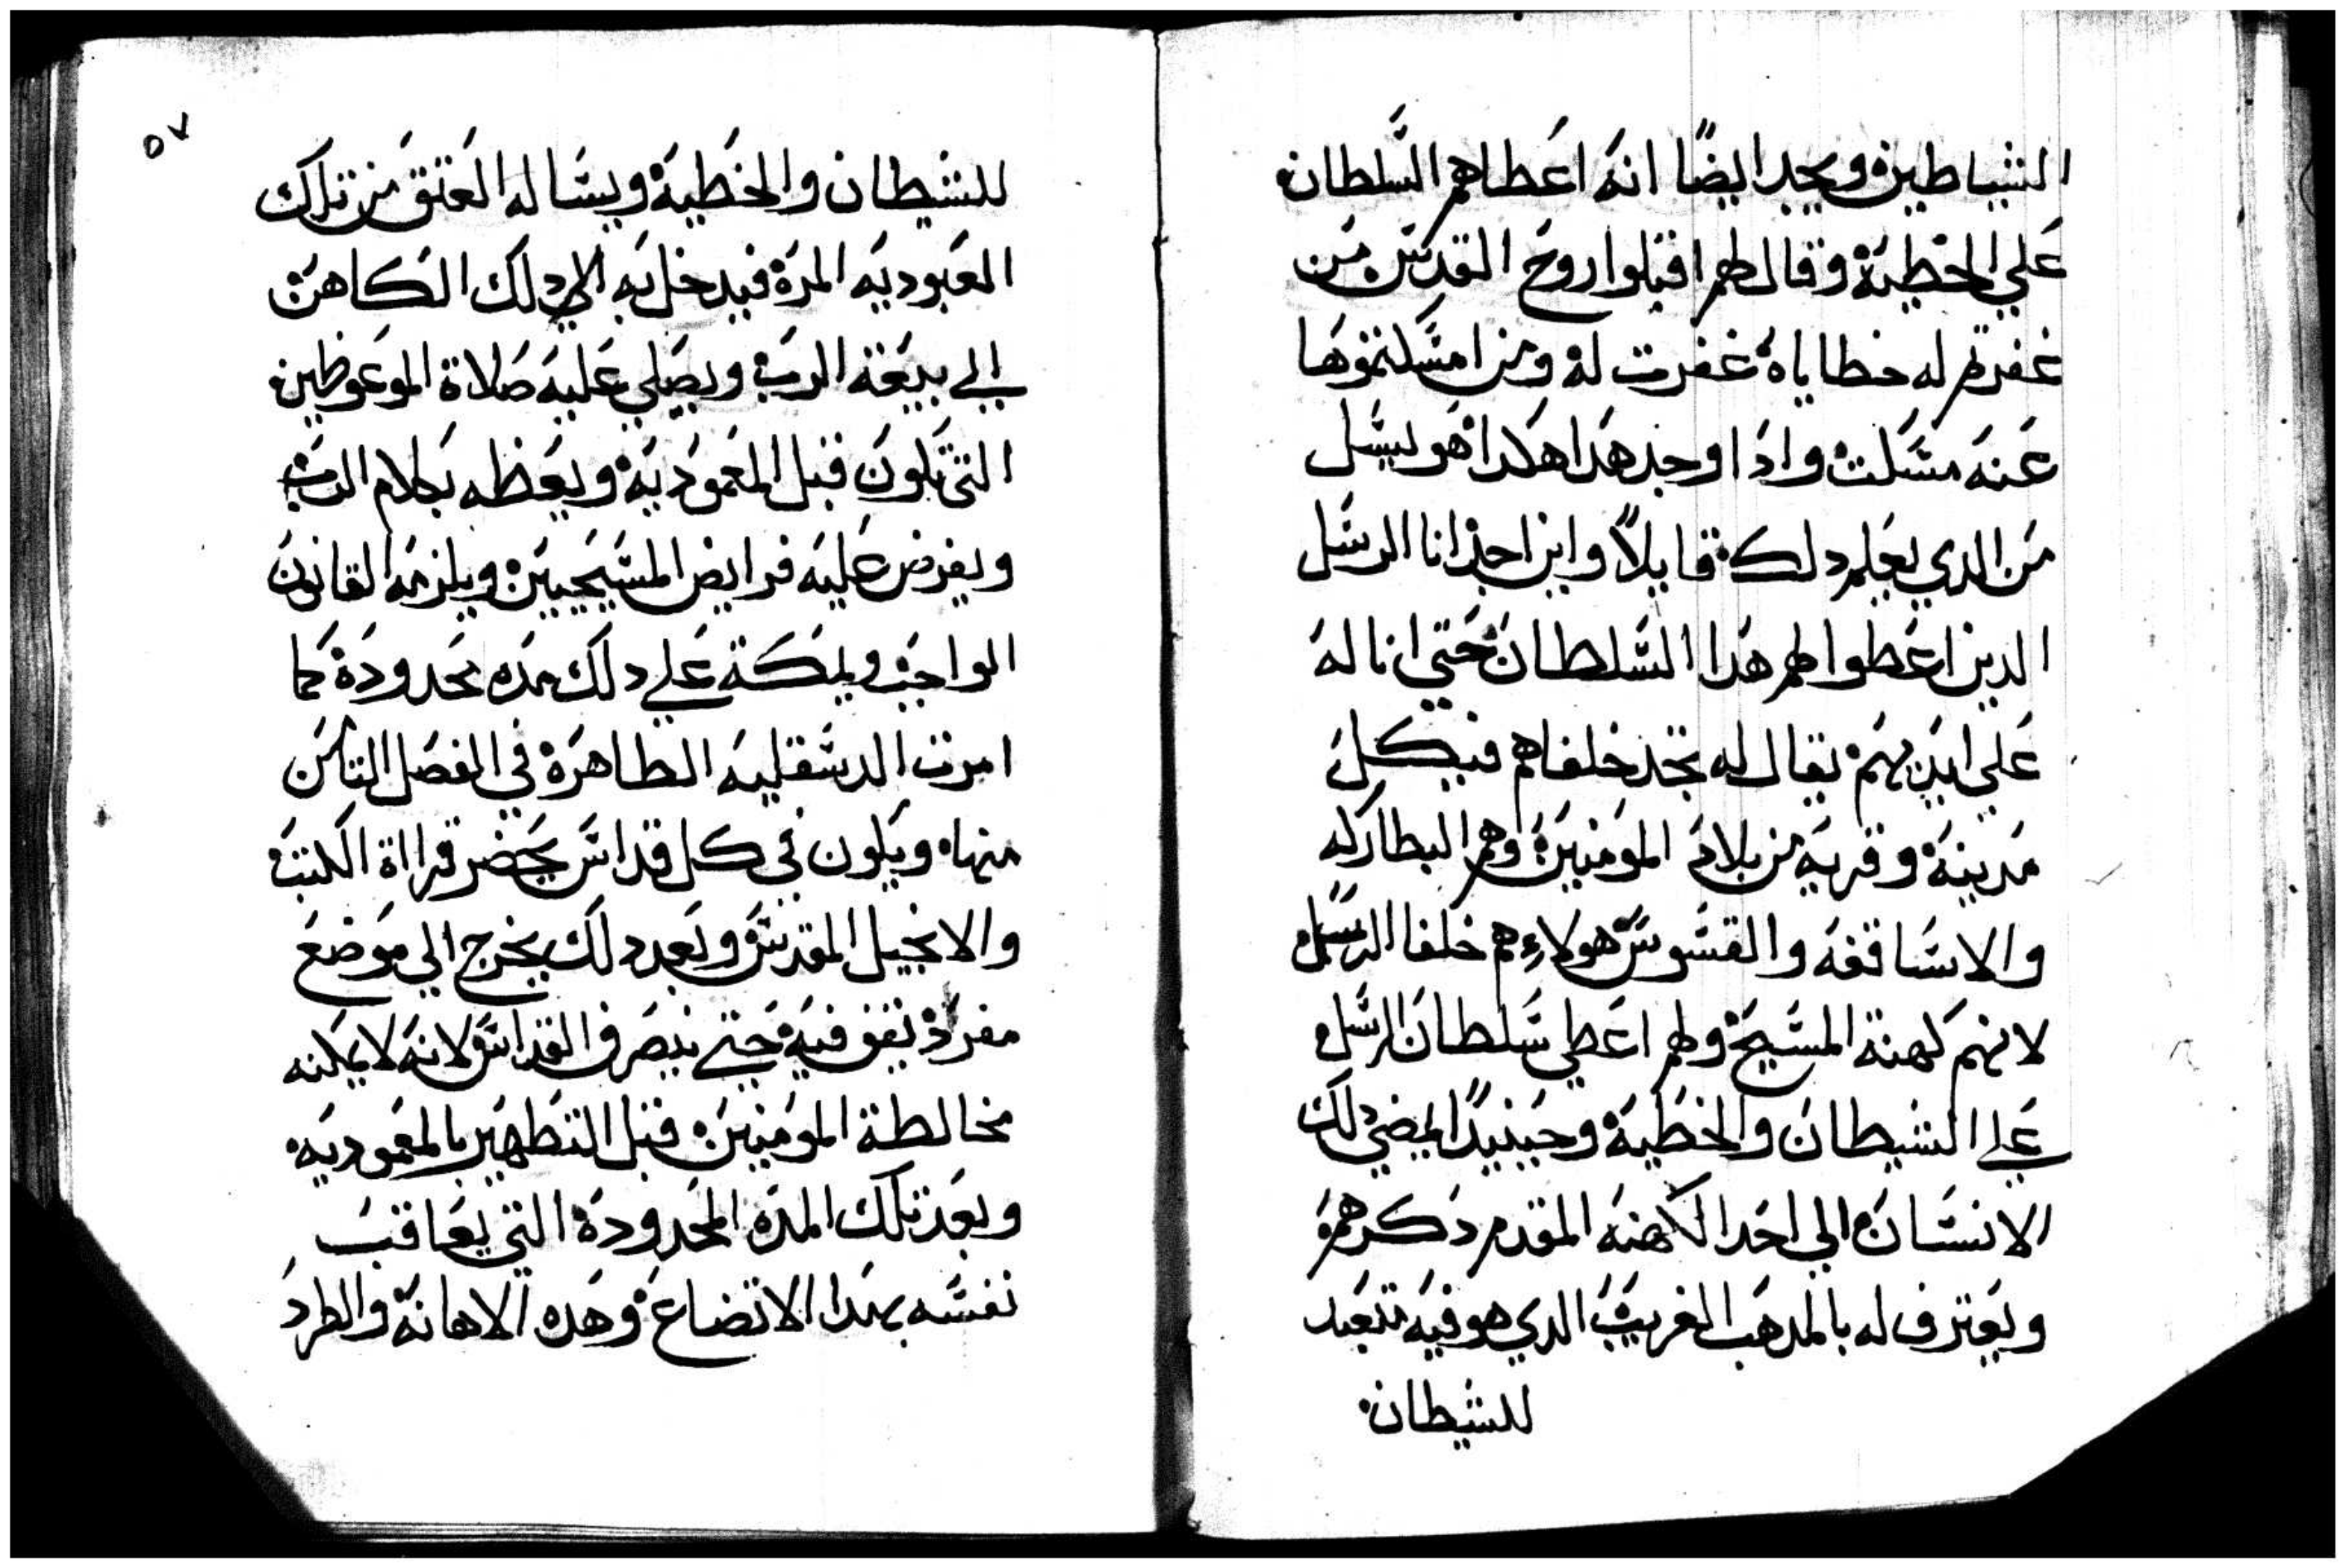 الشياطين ويجد ايضًا انه اعطاهم السلطان
علي الخطية وقال لهم اقبلوا روح القدس من
غفرتم له خطاياه غفرت له ومن امسكتموها
عنه مسكت واذا وجد هدا هكدا هو ليسل
من الدي يعلم دلك قايلاً واين اجد انا الرسل
الدين اعطوا لهم هدا السلطان حتي انا له
علي ايديهم يقال له تجد خلفاهم فيكل
مدينة وقريه من بلاد المومنين وهم البطاركه
والاساقفه والقسوس هولاء هم خلفا الرسل
لانهم كهنة المسيح ولهم اعطي سلطان الرسل
علي الشيطان والخطية وحينيدًا يمضي دلك
الانسان الي احد الكهنه المقدم دكرهم
ويعترف له بالمدهب الغريب الدي هو فيه تتعبد
للشيطان
٥٧
للشيطان والخطية ويساله العتق من تلك
العبوديه المرة فيدخل به الي دلك الكاهن
الي بيعة الرب ويصلي عليه صلاة الموعوظين
التي تكون قبل المعمودية ويعظه بكلام الرب
ويفرض عليه فرايض المسيحيين ويلزمه القانون
الواجب ويمكة علي دلك مده محدودة كما
امرت الدسقليه الطاهرة في الفصل الثامن
منها ويكون في كل قداس يحضر قراة الكتب
والانجيل المقدس وبعد دلك يخرج الي موضع
مفرد يقف فيه حتي ينصرف القداس لانه لا يمكنه
مخالطة المومنين قبل التطهير بالمعموديه
وبعد تلك المده المحدودة التي يعاقب
نفسه بهدا الاتضاع وهده الاهانة والطرد